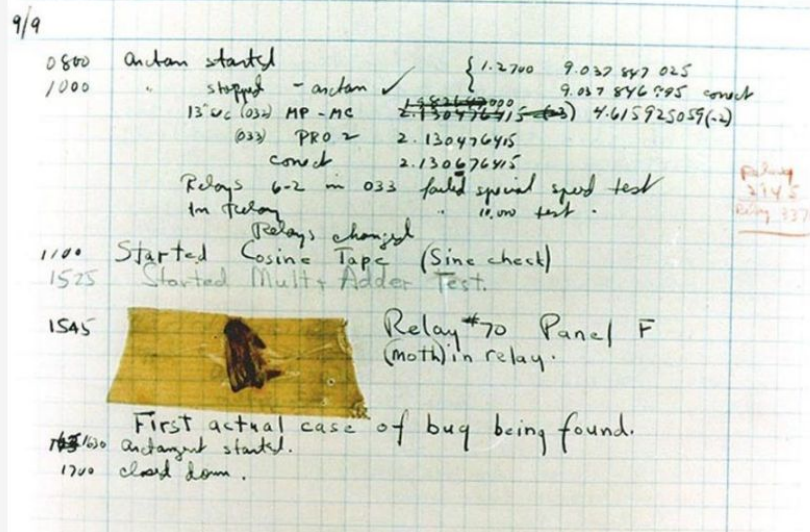 9/9
0800 antan started { 1.2700 9.037 847 025
1000 " stopped - antan ✓ 9.037 846 795 conect
13" uc (032) MP - MC 2.130476415 (-3) 4.615925059(-2)
(033) PRO 2 2.130476415
conect 2.130676415
Relays 6-2 in 033 failed special speed test
In Relay " 10,000 test .
Relays changed
Relay
1100 Started Cosine Tape (Sine check)
1525 Started Mult + Adder Test.
1545 Relay #70 Panel F
(moth) in relay.
First actual case of bug being found.
1630 antangent started.
1700 closed down .